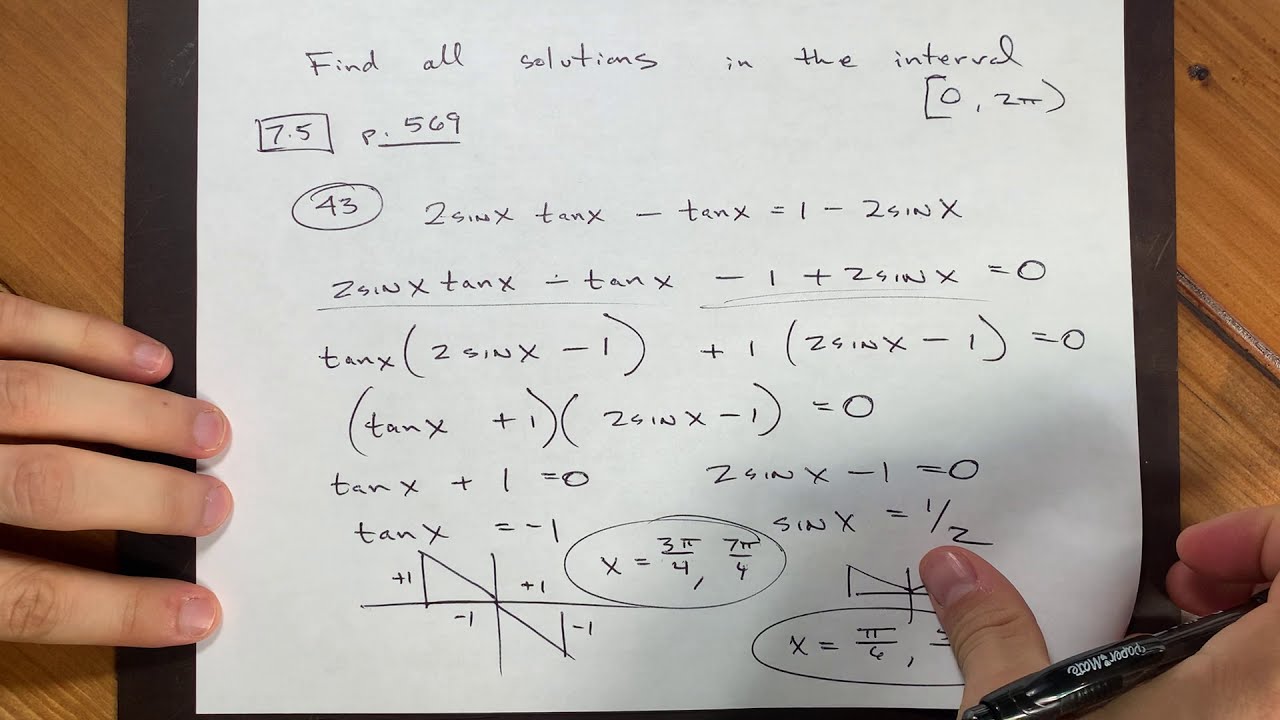 Find all solutions in the interval
[0, 2π)
7.5 p. 569
43 2sinx tanx - tanx = 1 - 2sinx
2sinx tanx - tanx - 1 + 2sinx = 0
tanx(2sinx - 1) + 1(2sinx - 1) = 0
(tanx + 1)(2sinx - 1) = 0
tanx + 1 = 0 2sinx - 1 = 0
tanx = -1 sinx = 1/2
x = 3π/4, 7π/4
+1 +1
-1 -1
x = π/6,
Paper Mate